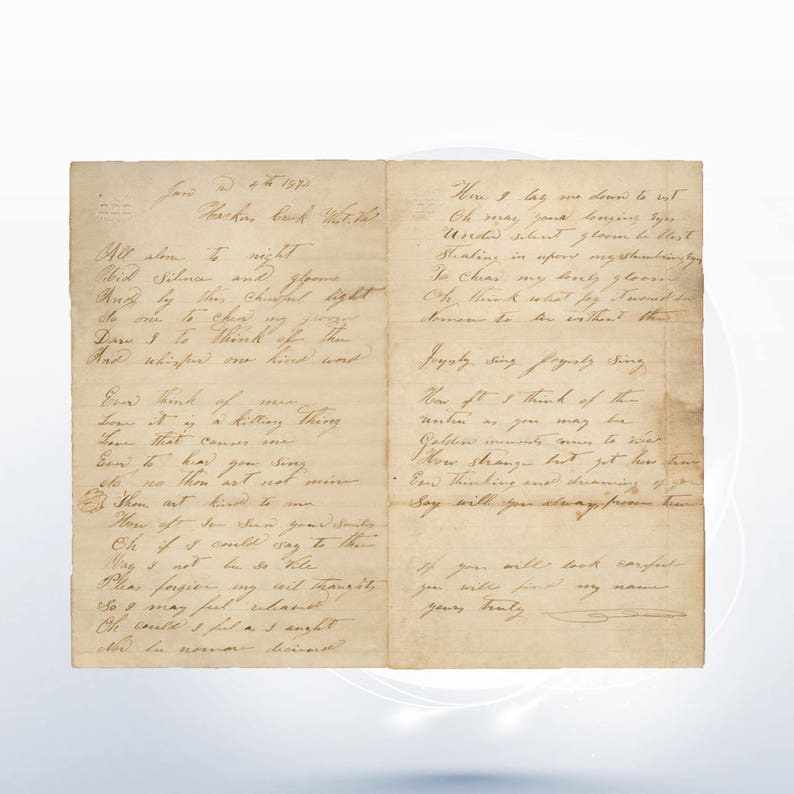 Jan the 4th 1874
Hackers Creek West. Va
All alone to night
Mid Silence and gloome
And by this cheerful light
No one to cheer my gloom
Dare I to think of thee
And whisper one kind word
Ever think of mee
Love it is a killing thing
Love that causes me
Ever to hear you sing
No no thou art not mine
Thou art kind to me
How oft Ive seen your smiles
Oh if I could say to thee
Way I not be so vile
Pleas forgive my evil thoughts
So I may feel relieved
Oh could I feel as I aught
And be nomore decieved
Here I lay me down to rest
Oh may your longing Eyes
Under silent gloom be blest
Stealing in upon my slumbring Eyes
To chear my lonly gloom
Oh think what joy it would be
Nomore to live without thee
Joystly Sing Joyestly Sing
How oft I think of thee
untru as you may be
Golden moments comes to view
How strange but yet how true
Ever thinking and dreaming of you
Say will you alway proove true
if you will look careful
you will find my name
yours truly